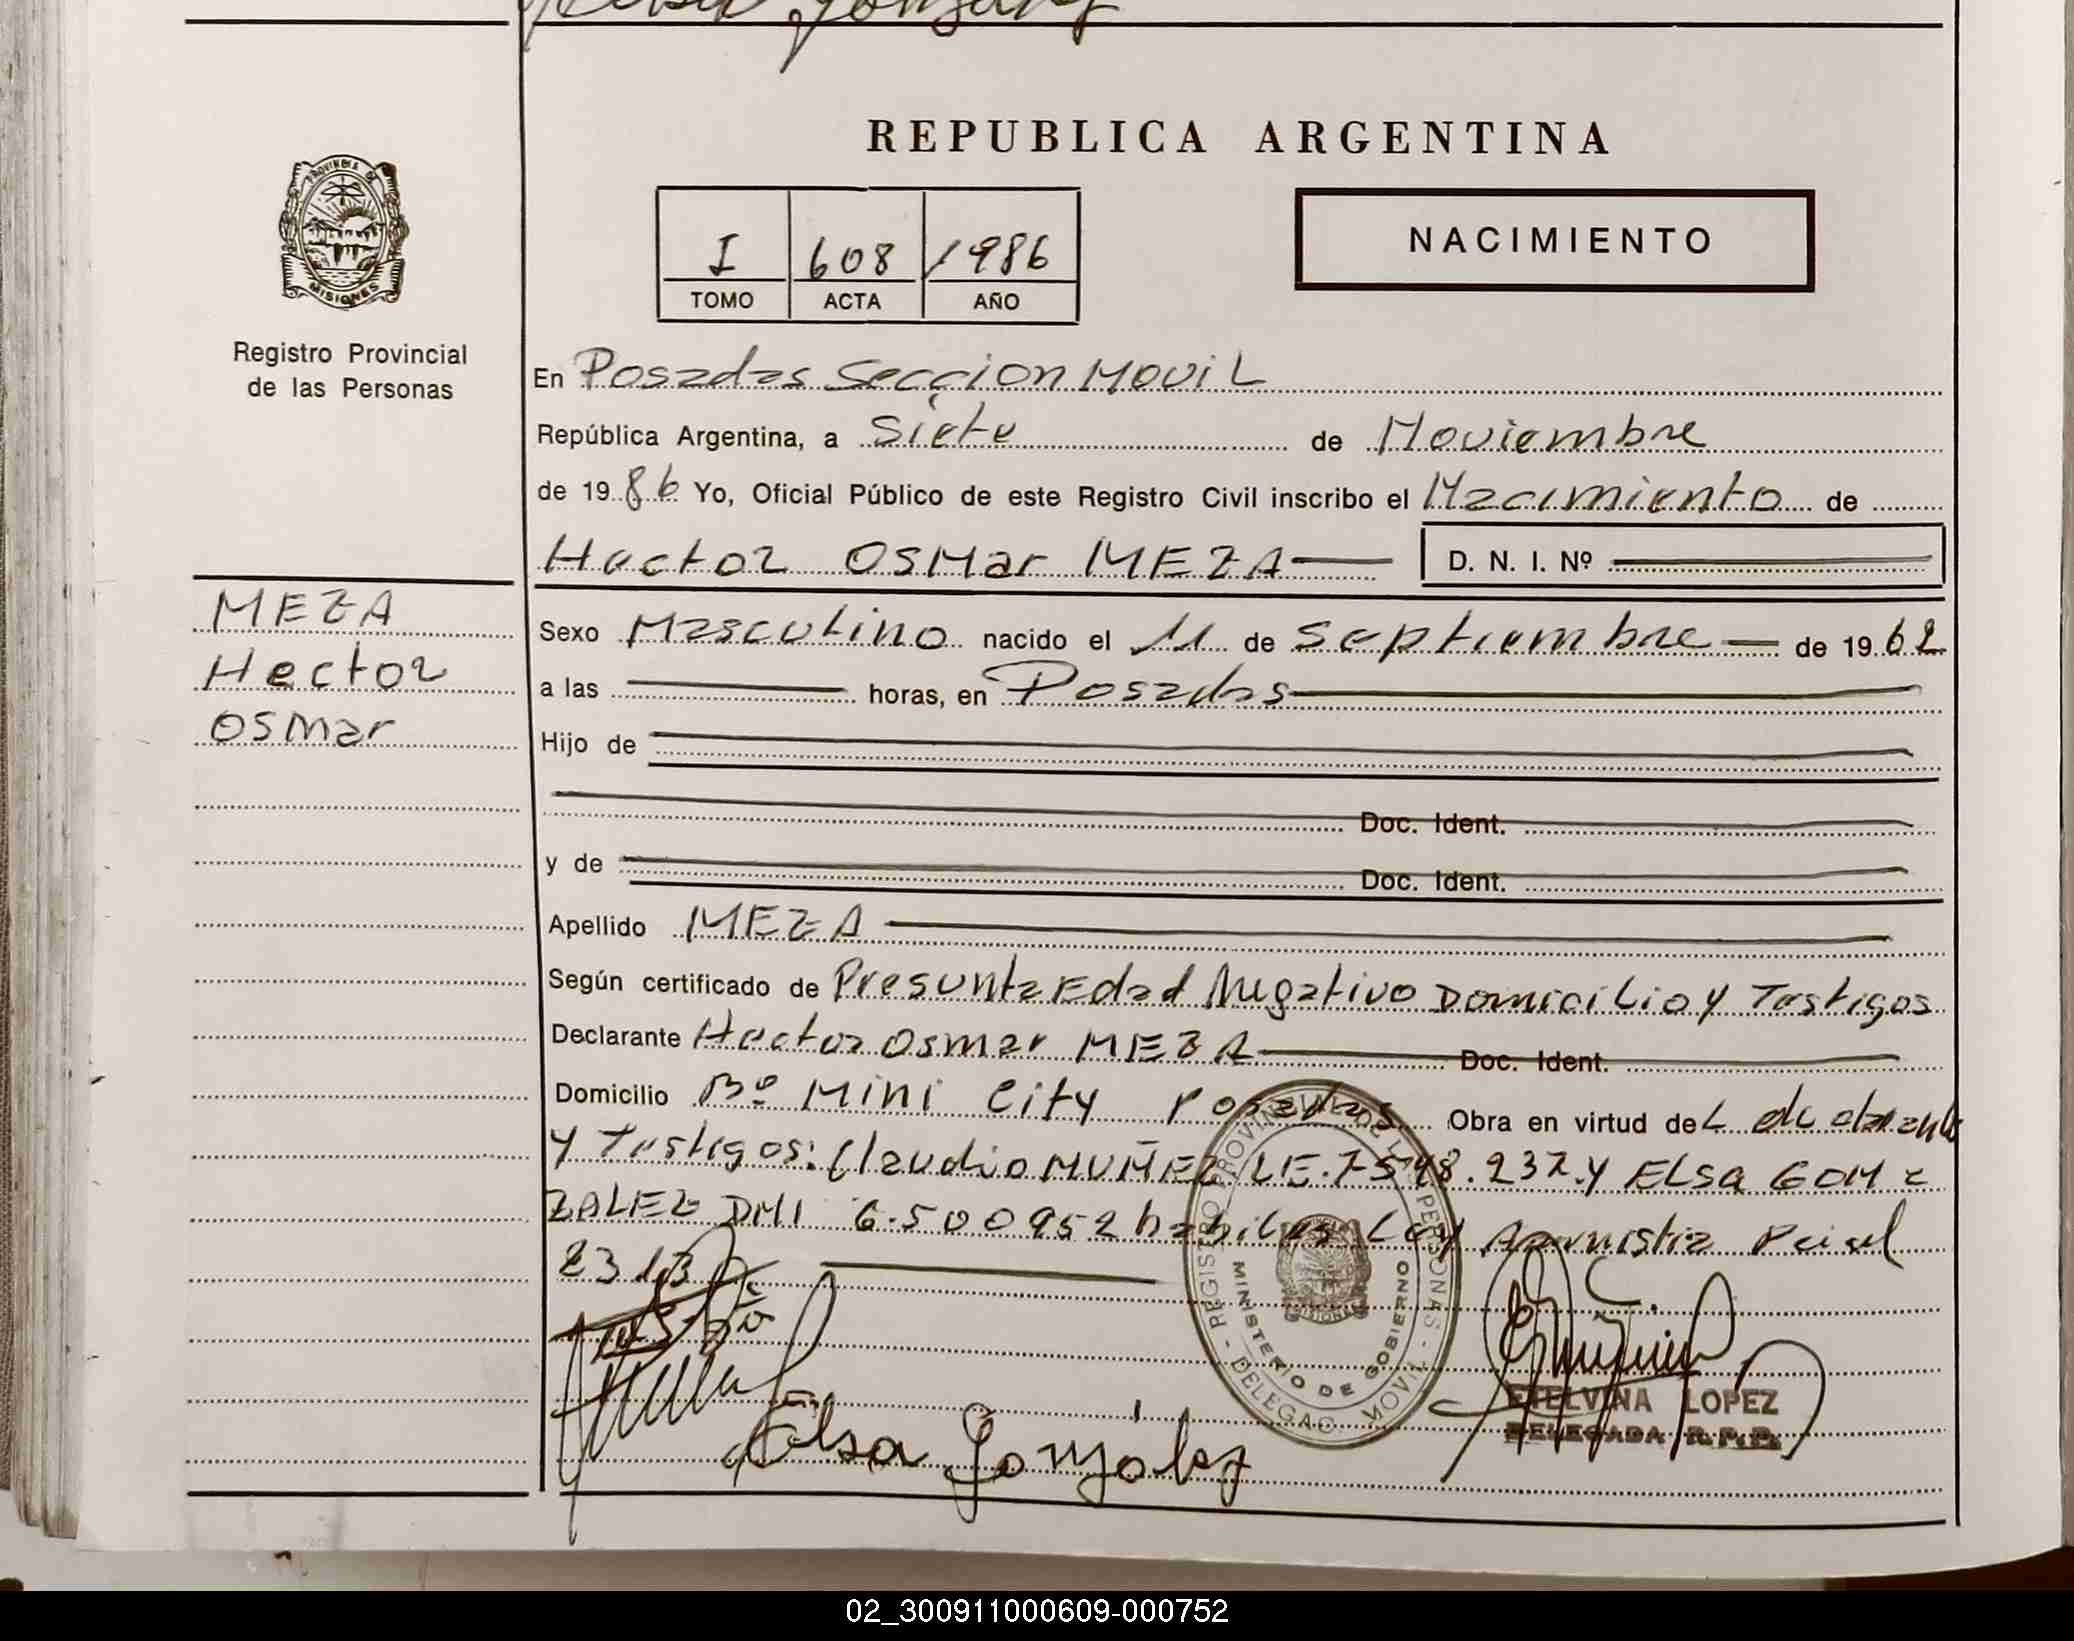 Elsa Gonzalez
REPUBLICA ARGENTINA
PROVINCIA DE
MISIONES
Registro Provincial
de las Personas
I 608 1986
TOMO ACTA AÑO
NACIMIENTO
En Posadas Seccion Movil
República Argentina, a Siete de Noviembre
de 1986 Yo, Oficial Público de este Registro Civil inscribo el Nacimiento de
Hector Osmar MEZA D. N. I. Nº
MEZA
Hector
Osmar
Sexo Masculino nacido el 11 de Septiembre de 1962
a las horas, en Posadas
Hijo de
Doc. Ident.
y de Doc. Ident.
Apellido MEZA
Según certificado de Presunta Edad Negativo Domicilio y Testigos
Declarante Hector Osmar MEZA Doc. Ident.
Domicilio Bº Mini City Posadas Obra en virtud del declarante
y Testigos: Claudio MUÑEZ LE. 7548.237. y ELSA GON
ZALEZ DNI 6.500952 habiles Ley Amnistia Pcial
2313
REGISTRO PROVINCIAL DE LAS PERSONAS - DELEGAC. MOVIL -
MINISTERIO DE GOBIERNO
ETELVINA LOPEZ
DELEGADA R.P.P.
Elsa Gonzalez
02_300911000609-000752